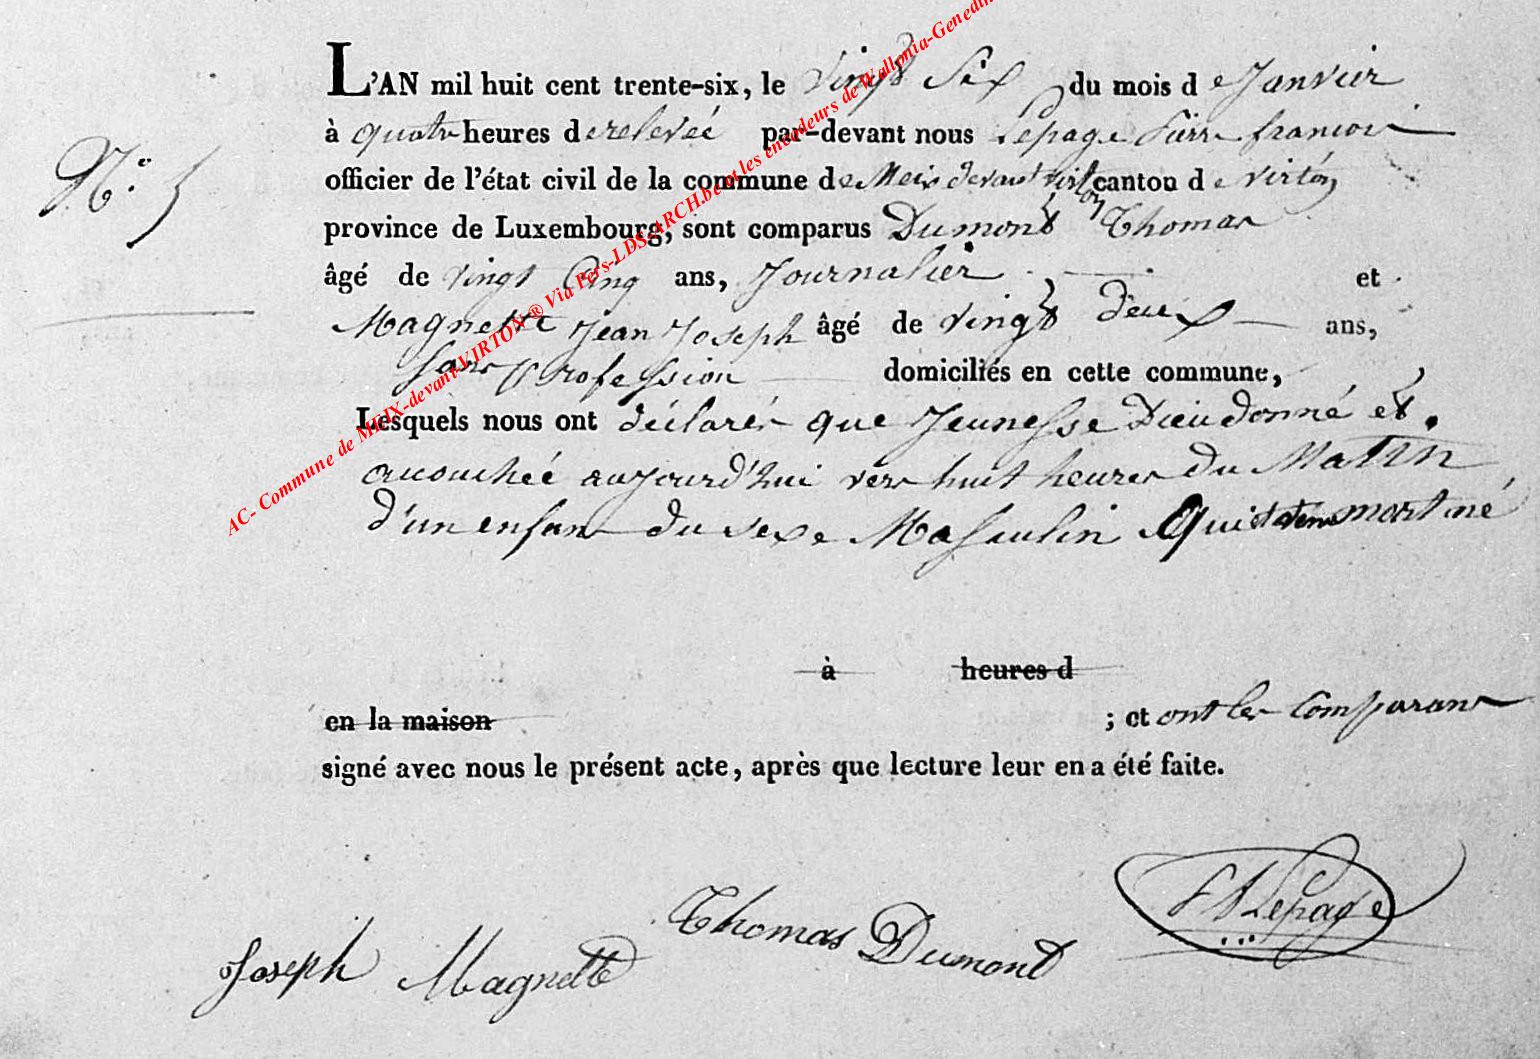 N.º 5
L'AN mil huit cent trente-six, le vingt Six du mois de Janvier
à quatre heures de relevée par-devant nous Lepage Pierre françois
officier de l'état civil de la commune de Meix devant virton canton de virton
province de Luxembourg, sont comparus Dumont Thomas
âgé de vingt Cinq ans, Journalier et
Magnette Jean Joseph âgé de vingt deux ans,
Sans Profession domiciliés en cette commune,
Lesquels nous ont déclarés que Jeunesse Dieudonné est
acouchée aujourd'hui vers huit heures du Matin
d'un enfant du sexe Masculin Qui est mort né
à heures d
en la maison ; et ont les Comparans
signé avec nous le présent acte, après que lecture leur en a été faite.
Joseph Magnette
Thomas Dumont
Lepage
AC- Commune de MEIX-devant-VIRTON ® Via Pers-LDS-ARCH.be et les encodeurs de Wallonia-Genedin